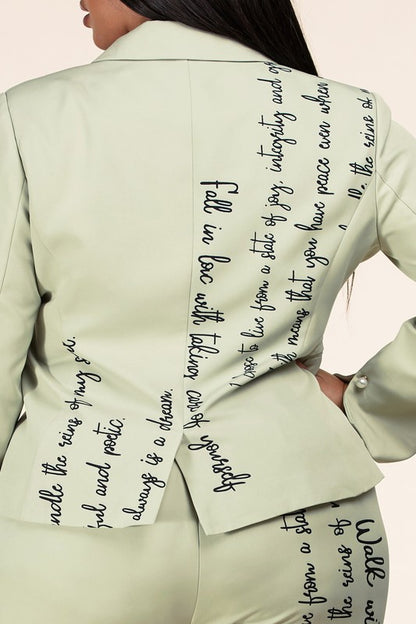 Fall in love with taking care of yourself
Chose to live from a state of joy, integrity and
means that you have peace even when
the reins of
handle the reins of my
and poetic.
always is a dream.
from a
the reins of
Walk